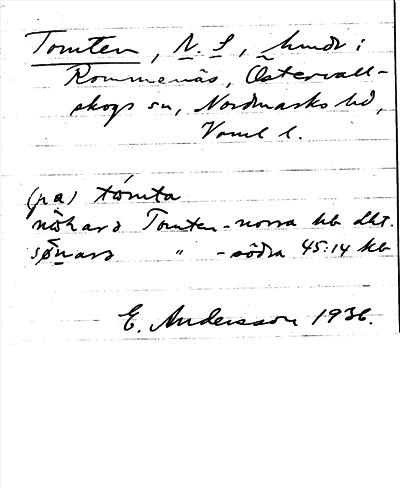 Tomten, N. S, hmdr i
Rommenäs, Östervall-
skogs sn, Nordmarks hd,
Vrml l.
(pa) tómta
Tomten - norra kb dkt.
" - södra 45:14 kb
E. Andersson 1936.